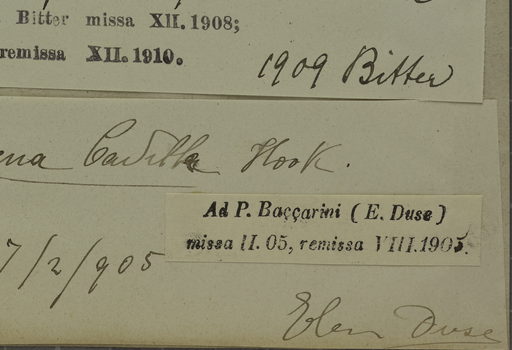 Bitter missa XII. 1908;
remissa XII. 1910.
1909 Bitter
ena Cavilla Hook.
Ad P. Baççarini (E. Duse)
missa II. 05, remissa VIII.1905.
7/2/905
Elen Duse